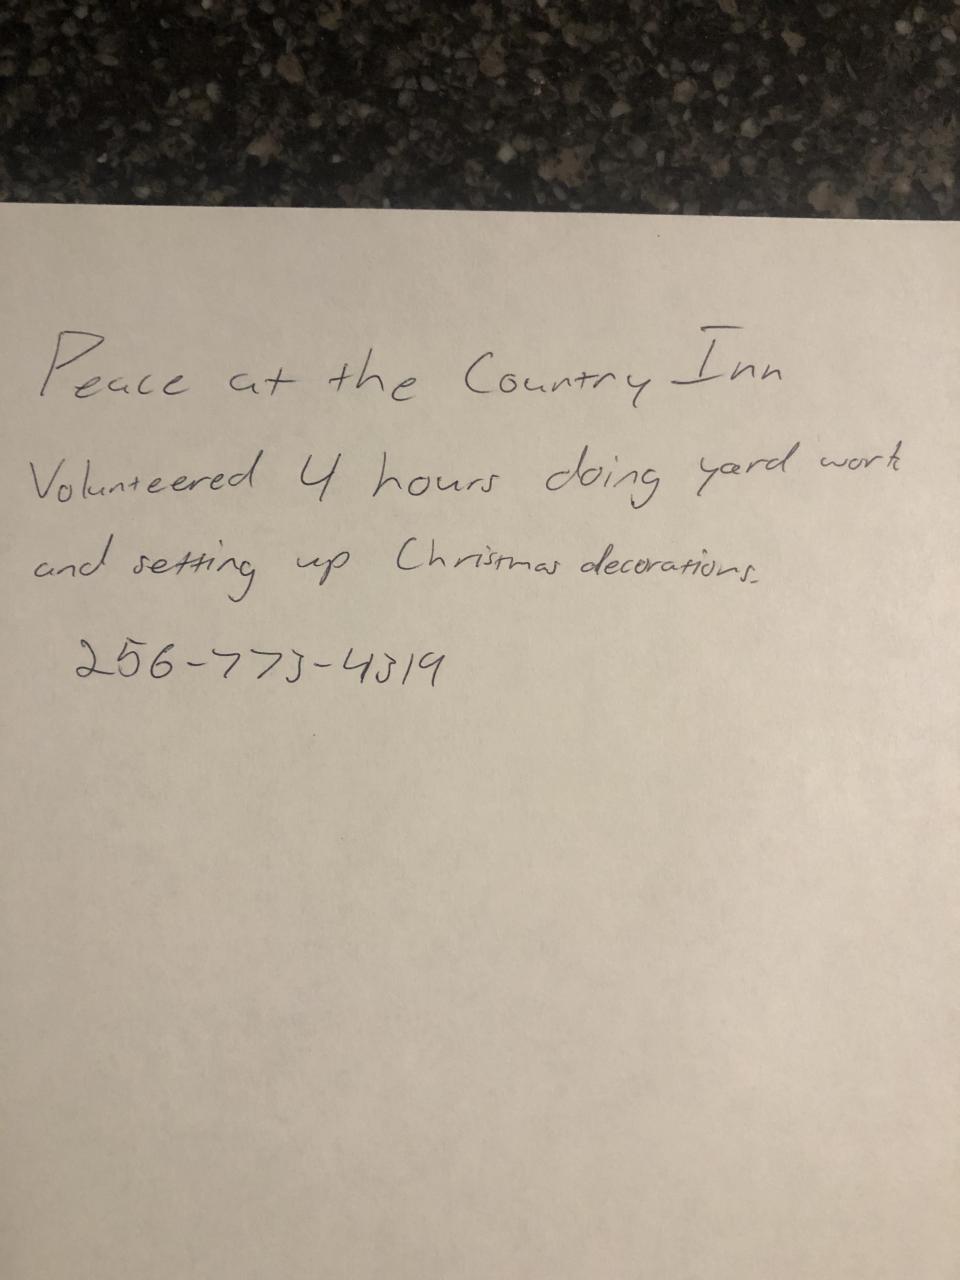 Peace at the Country Inn
Volunteered 4 hours doing yard work
and setting up Christmas decorations.
256-773-4319